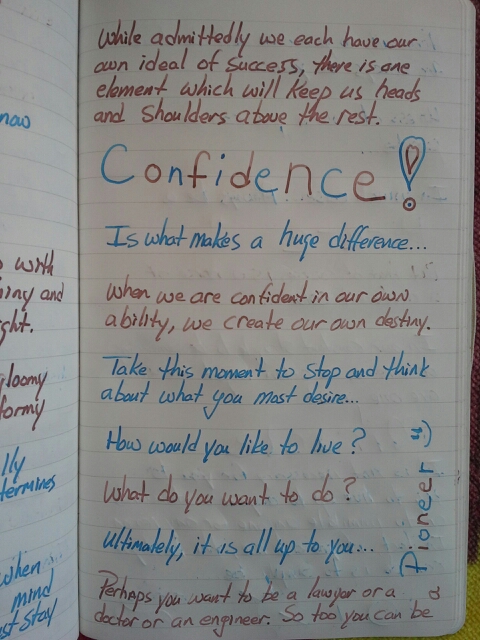 now
with
and
ght.
gloomy
formy
lly
termines
when
mind
st stay
While admittedly we each have our
own ideal of success, there is one
element which will keep us heads
and shoulders above the rest.
Confidence!
Is what makes a huge difference...
When we are confident in our own
ability, we create our own destiny.
Take this moment to stop and think
about what you most desire...
How would you like to live?
What do you want to do?
Ultimately, it is all up to you...
Perhaps you want to be a lawyer or a
doctor or an engineer. So too you can be
a
Pioneer =)